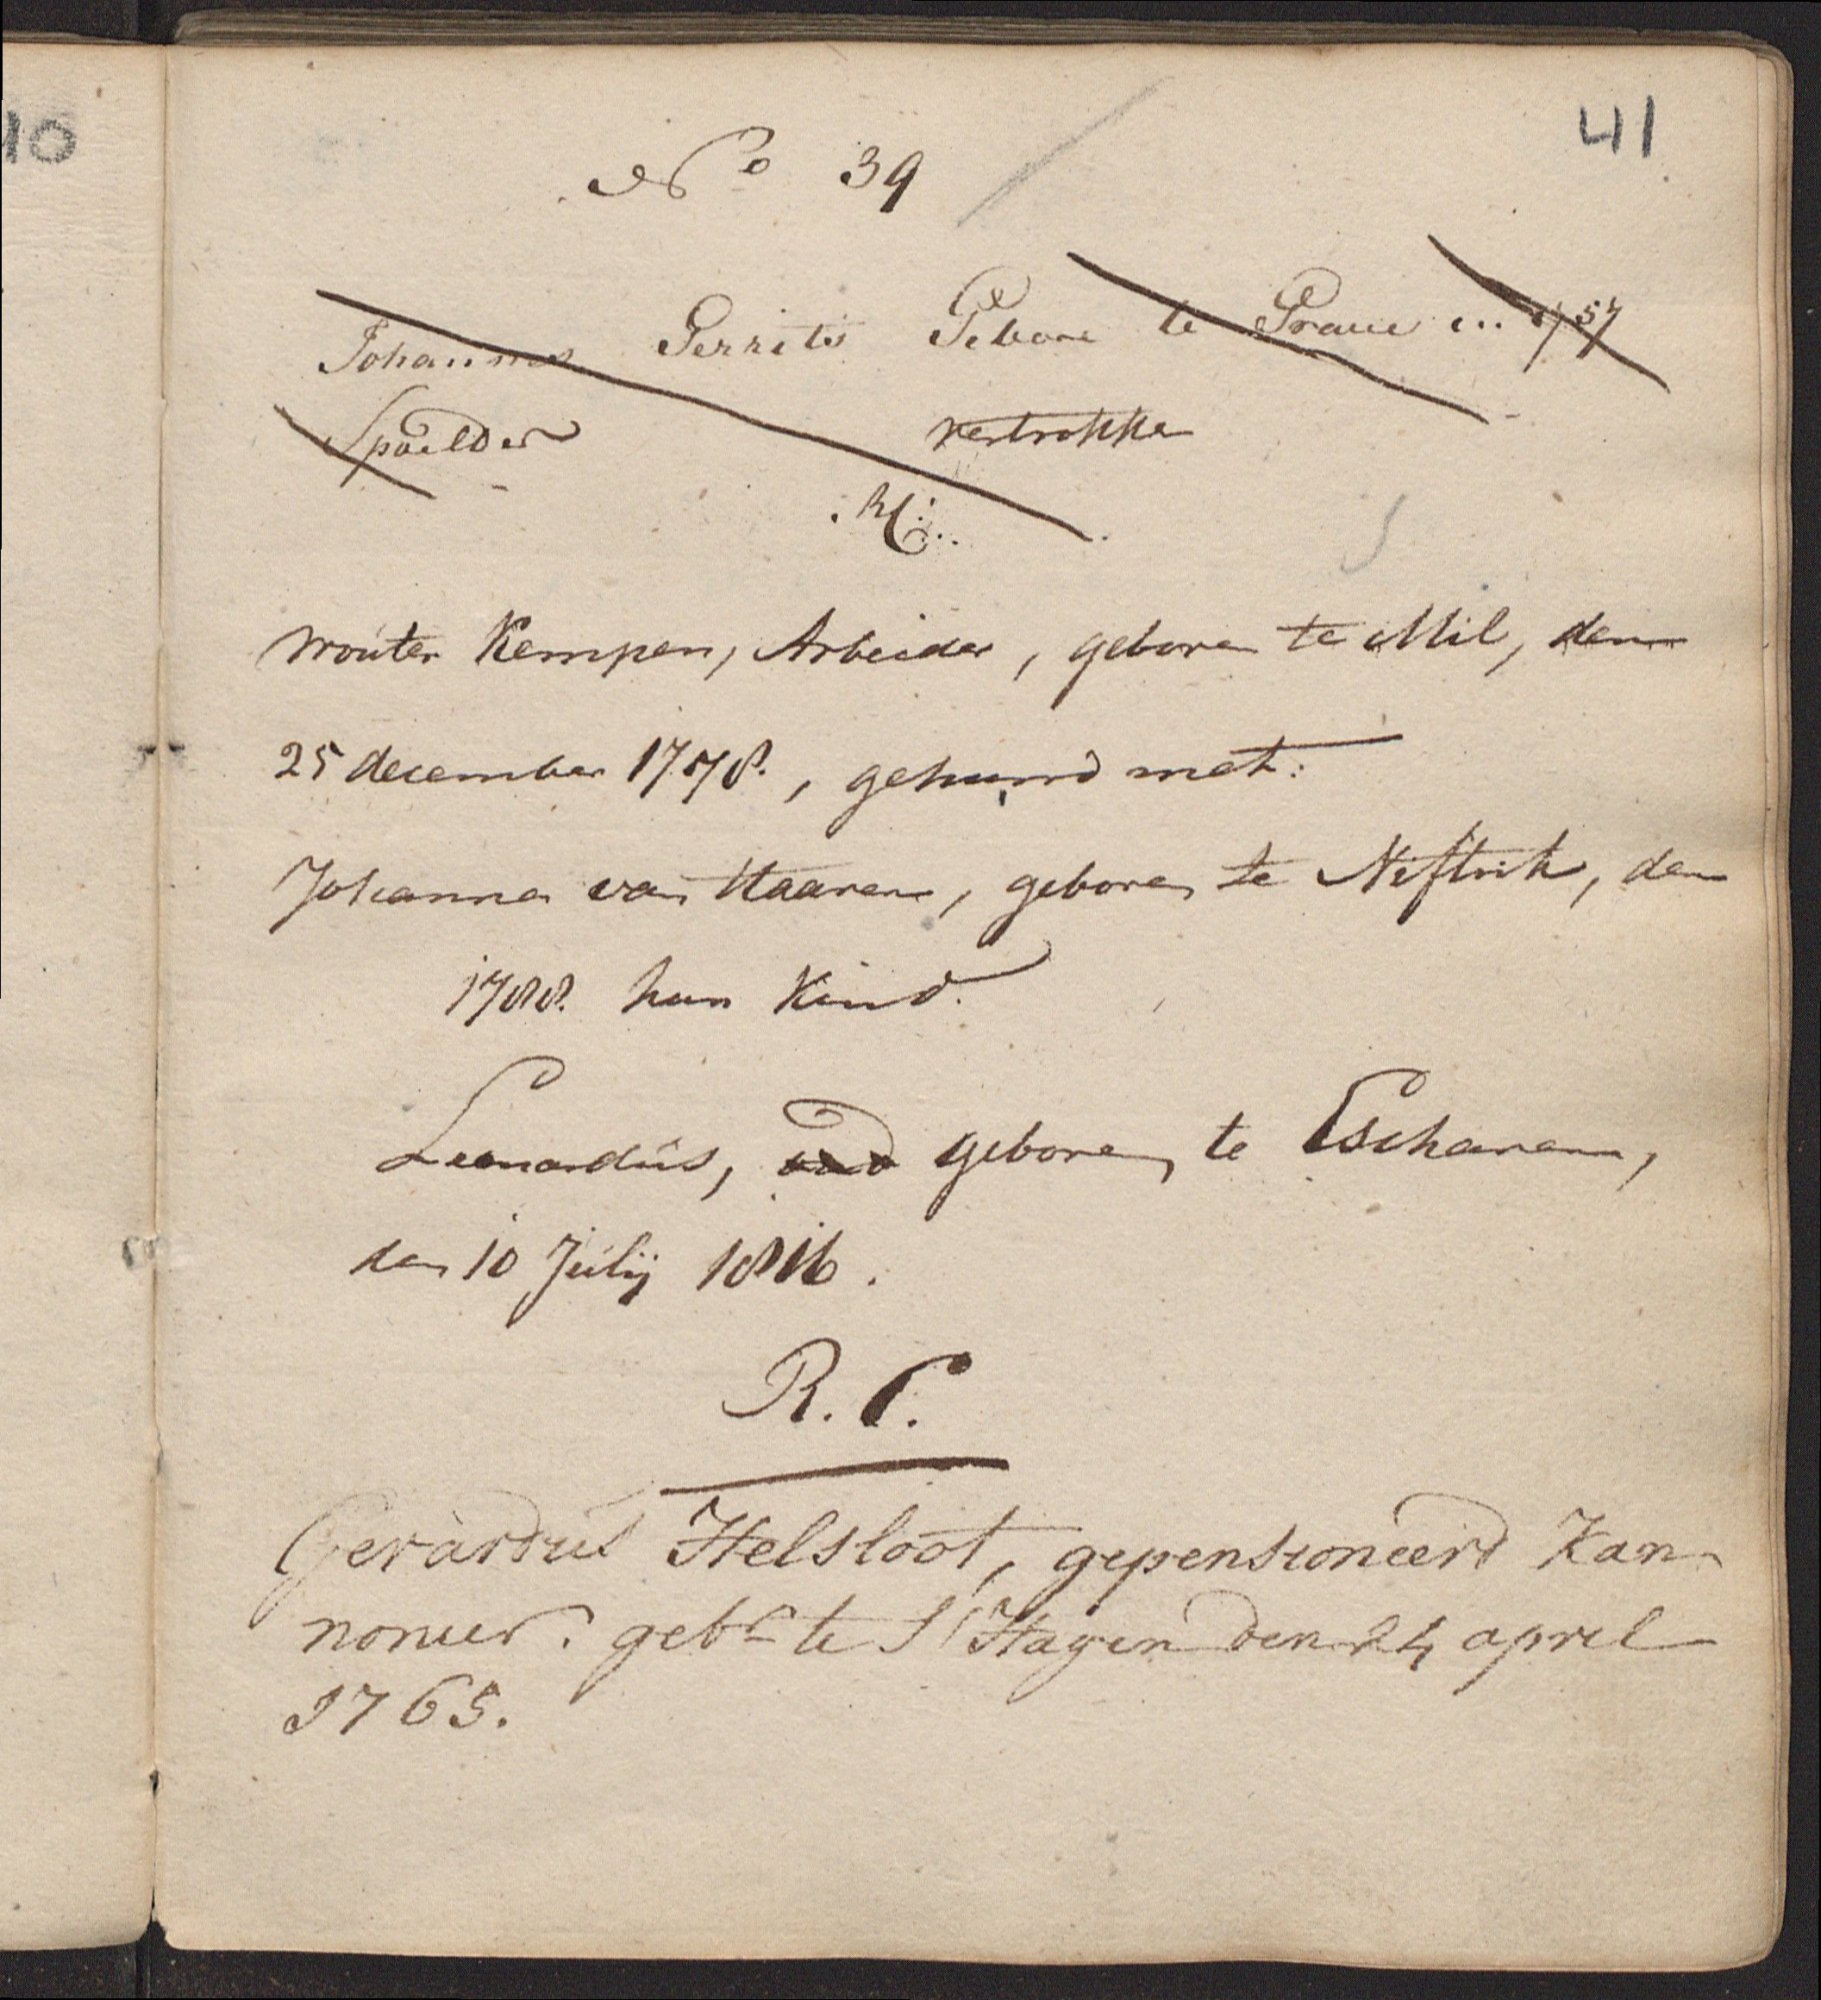 40
41
No 39
Johannes Gerrits Gebore te Grave 1757
Spoelder vertrokke
Wouter Kempen, Arbeider, geboren te Mil, den
25 december 1778., gehuwd met:
Johanna van Haaren, geboren te Niftrik, den
1788. hun Kind.
Leonardus, geboren te Escharen,
den 10 Julij 1816.
R.C.
Gerardus Helsloot, gepensioneerd Kan-
nonier. gebn te S' Hagen den 24 april
1765.